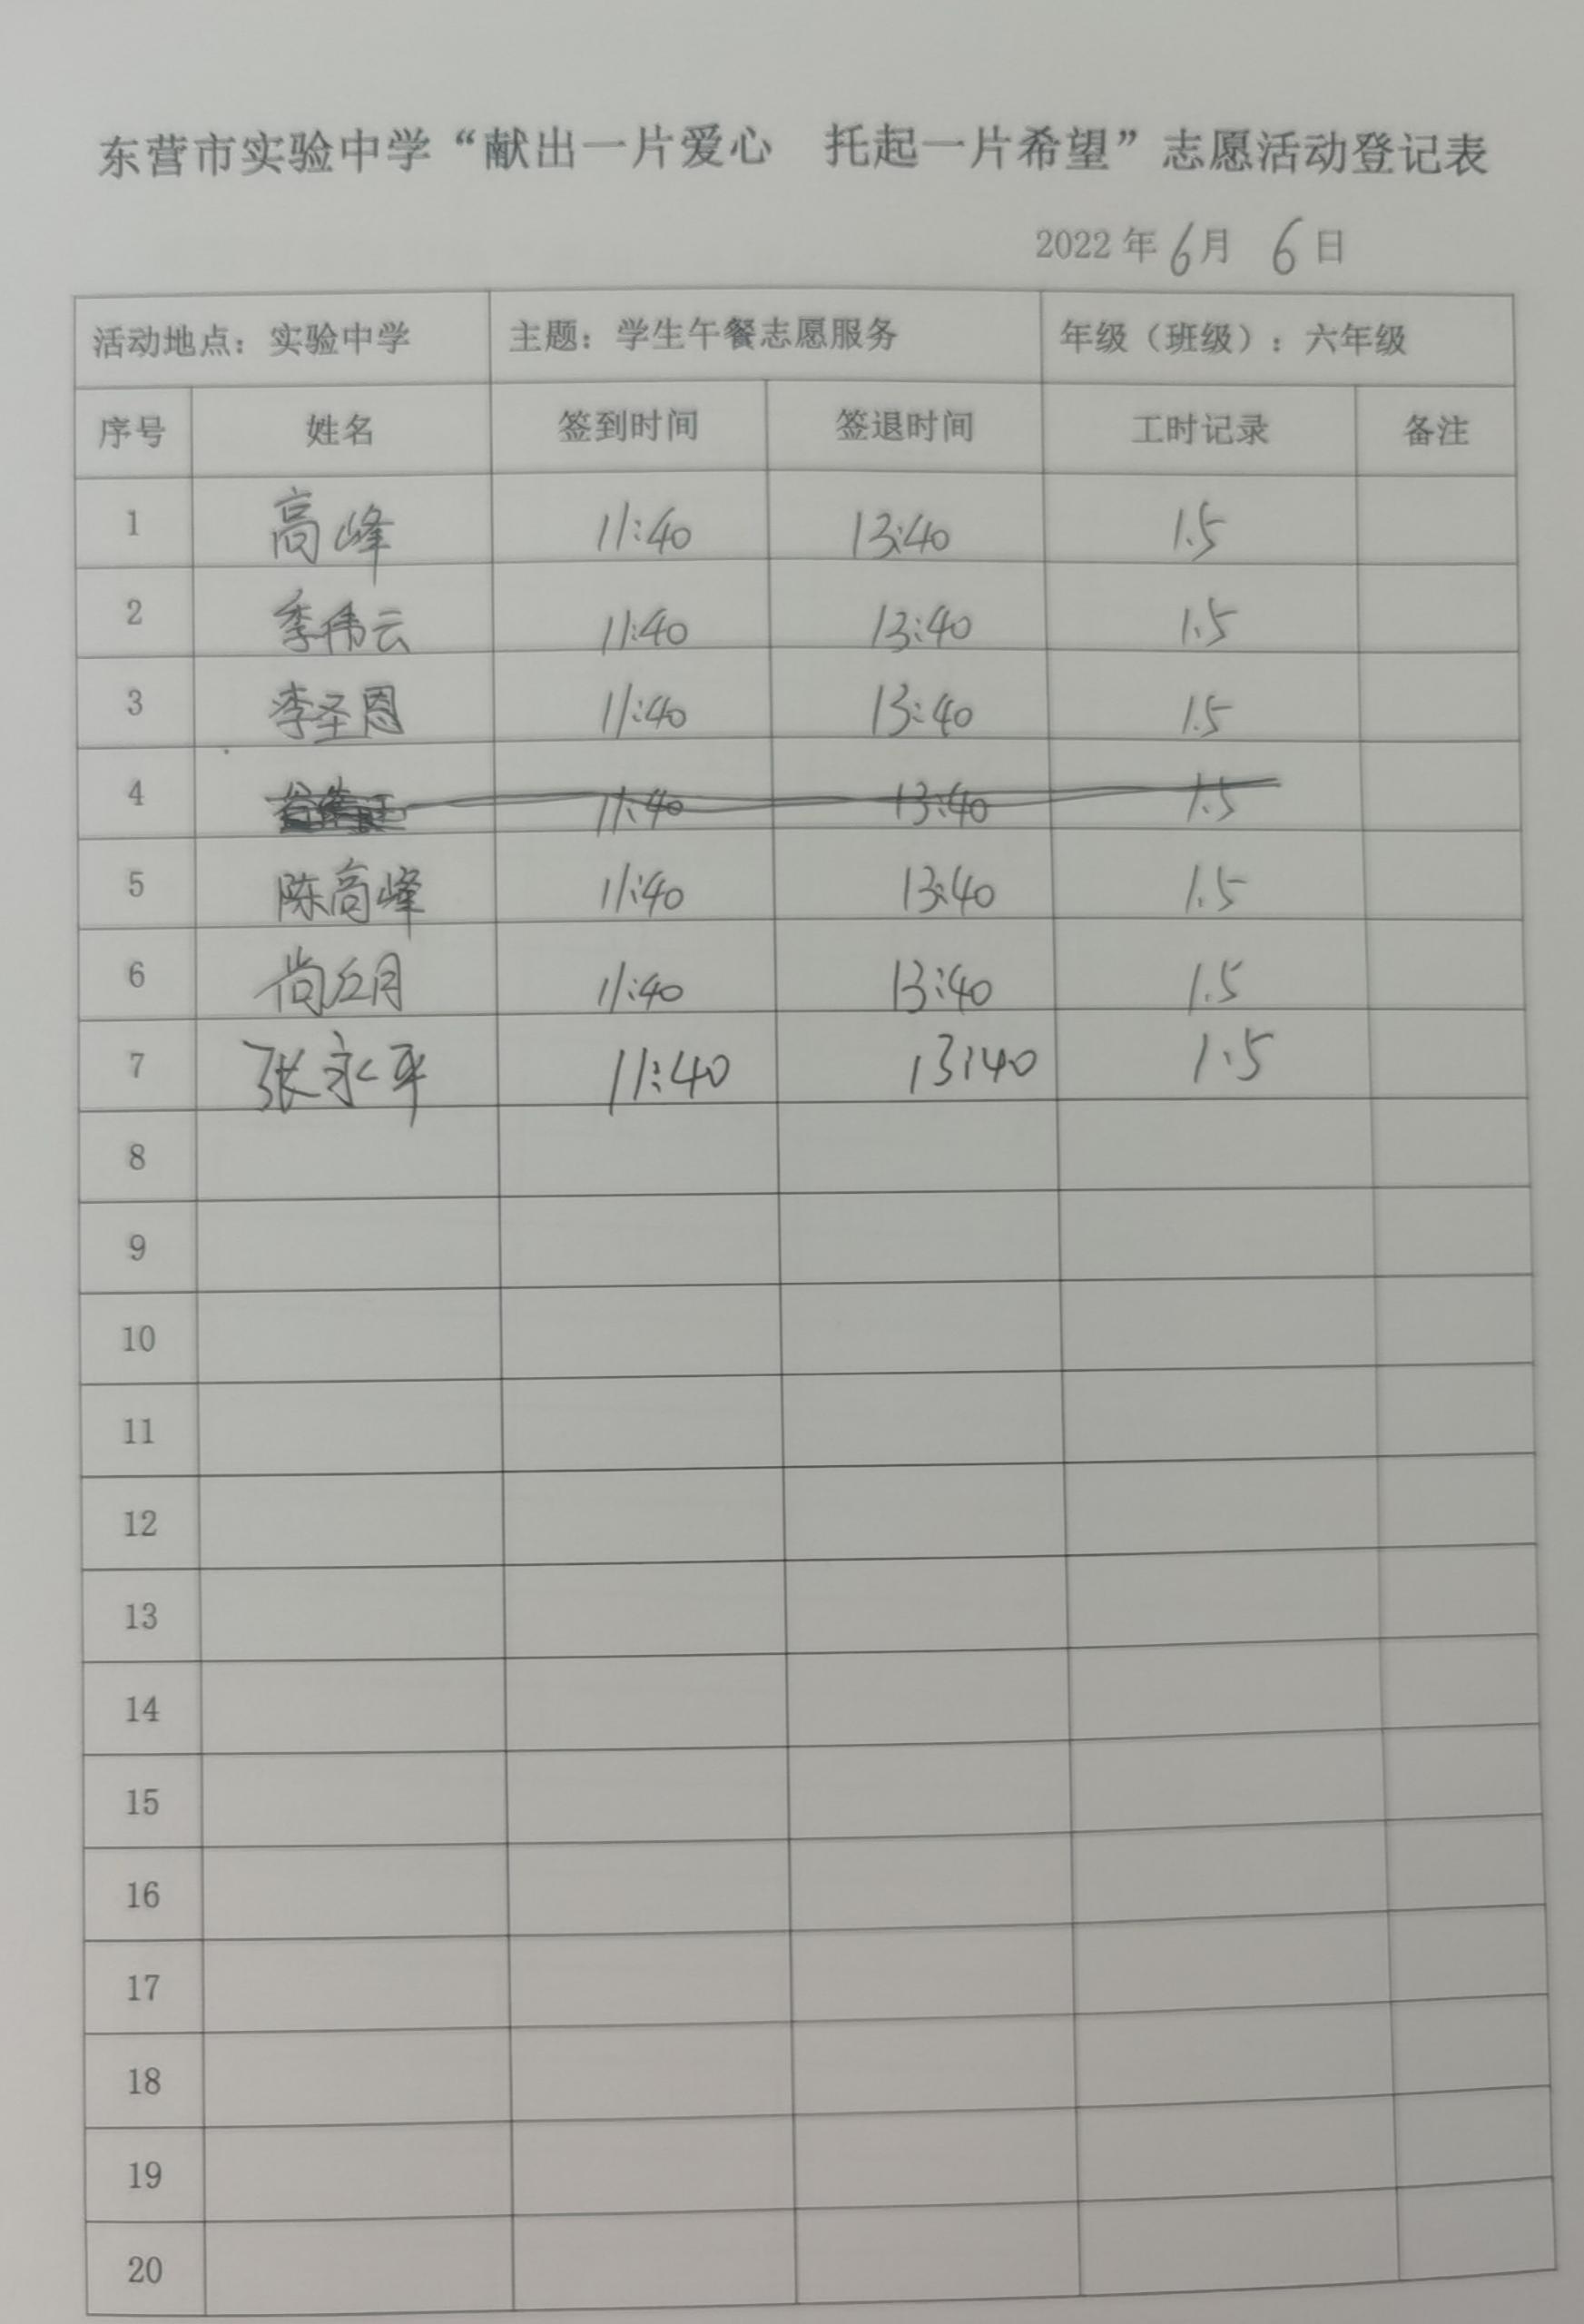 东营市实验中学“献出一片爱心 托起一片希望”志愿活动登记表
2022年6月 6日
活动地点：实验中学 主题：学生午餐志愿服务 年级（班级）：六年级
序号 姓名 签到时间 签退时间 工时记录 备注
1 高峰 11:40 13:40 1.5
2 季伟云 11:40 13:40 1.5
3 李圣恩 11:40 13:40 1.5
4 11:40 13:40 1.5
5 陈高峰 11:40 13:40 1.5
6 尚丘月 11:40 13:40 1.5
7 张永平 11:40 13:40 1.5
8
9
10
11
12
13
14
15
16
17
18
19
20